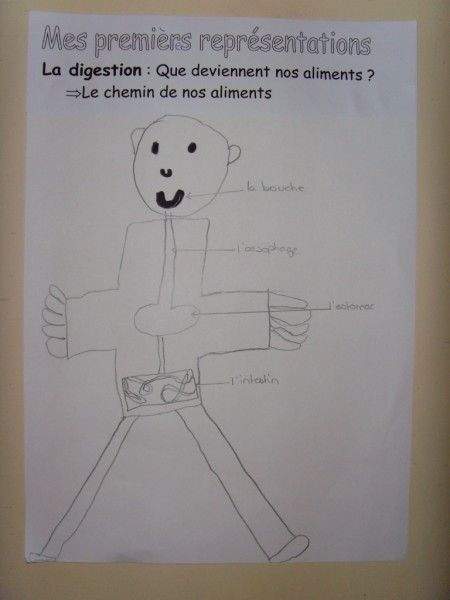 Mes premières représentations
La digestion : Que deviennent nos aliments ?
⇒Le chemin de nos aliments
la bouche
l'oesophage
l'estomac
l'intestin